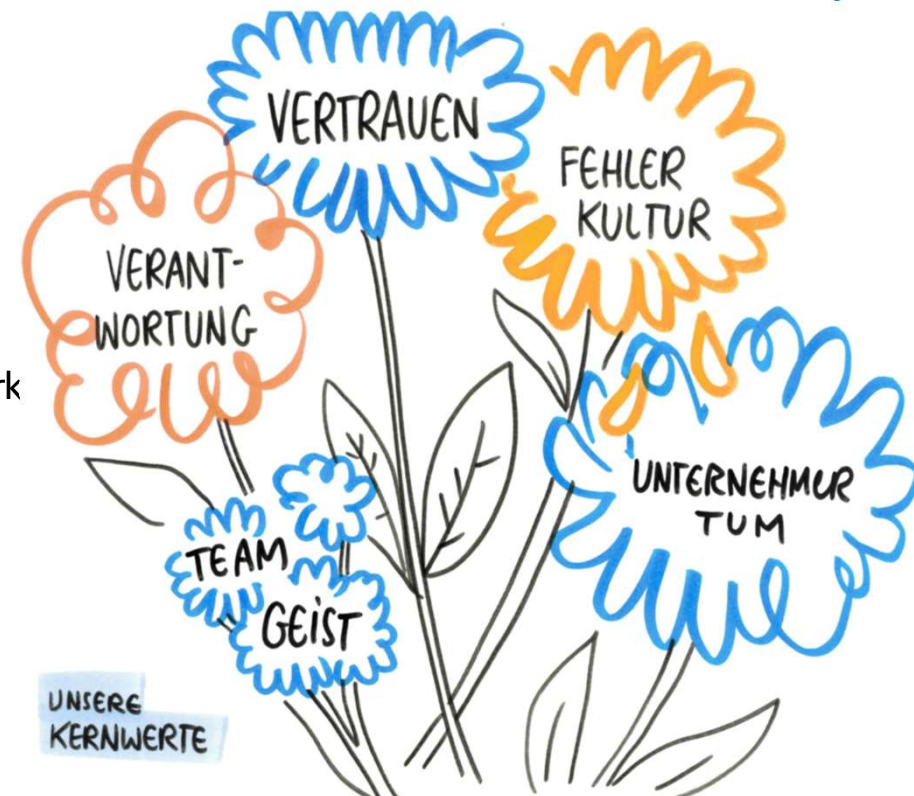 VERTRAUEN
FEHLER
KULTUR
VERANT-
WORTUNG
rk
UNTERNEHMER
TUM
TEAM
GEiST
UNSERE
KERNWERTE